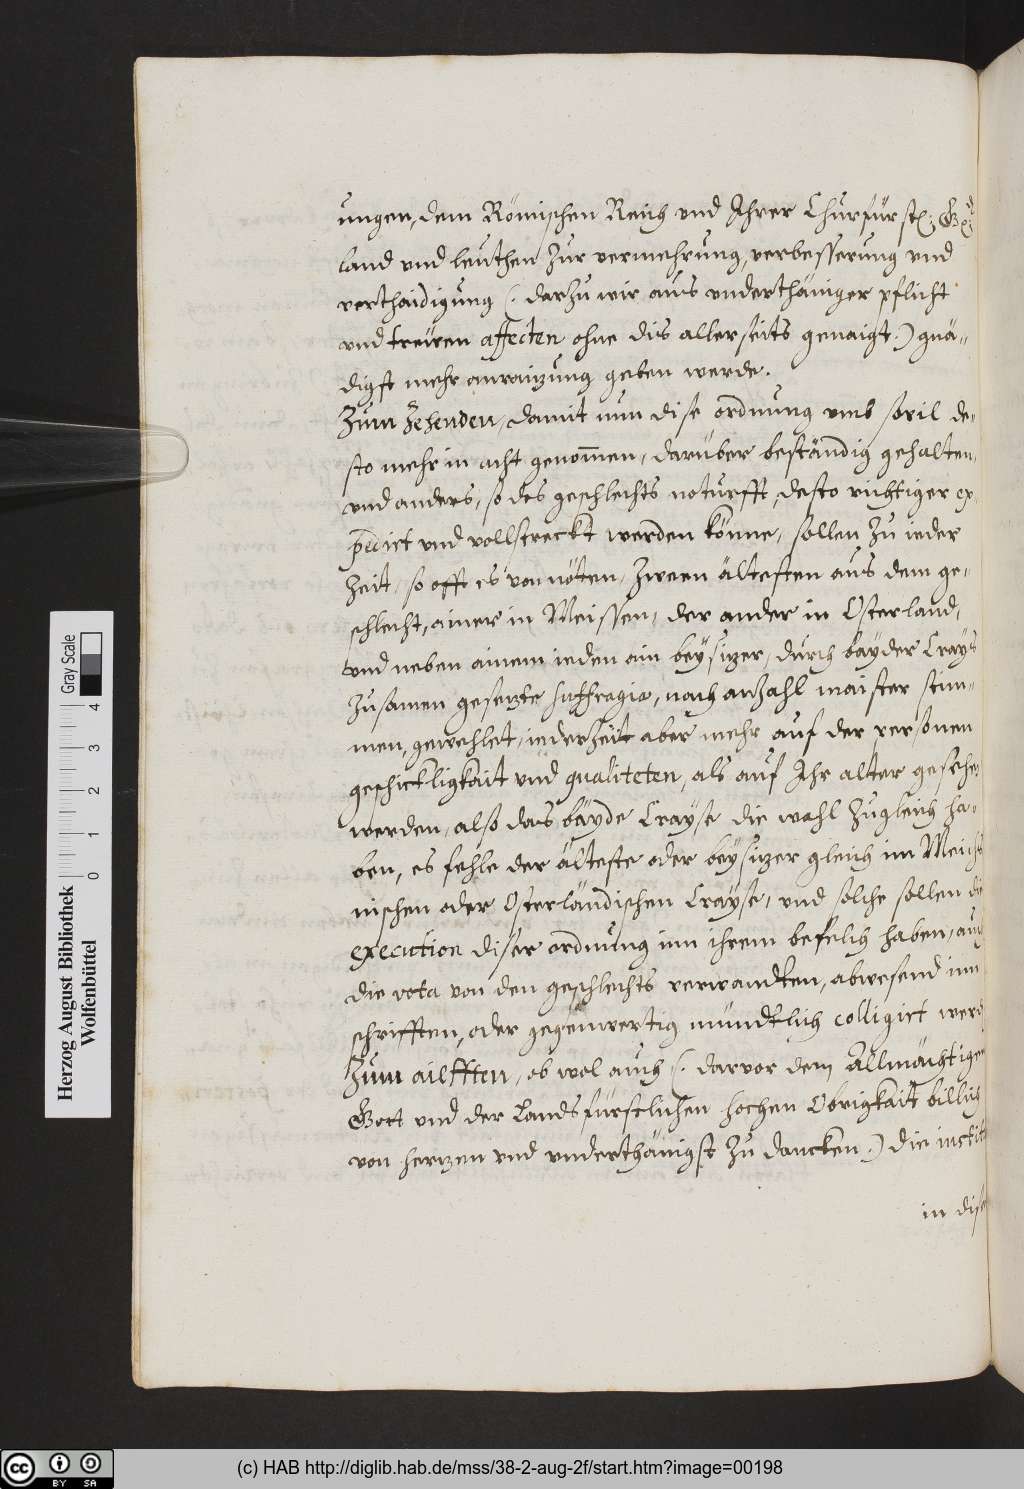 ungen, dem Römischen Reich vnd Ihrer Churfürstl:
land vnd leuthen Zur vermehrung, verbesserung vnd
verthaidigung (. darzu wir aus vnderthäniger pflicht
vnd treüen affecten ohne dis allerseits genaigt.) gnä-
digst mehr anraizung geben werde.
Zum Zehenden, damit nun dise ordnung vmb sovil de-
sto mehr in acht genom̄en, darüber beständig gehalten,
vnd anders, so des geschlechts noturfft, desto richtiger ex
pedirt vnd vollstreckt werden könne, sollen Zu ieder
Zeit, so offt es von nöten, Zween ältesten aus dem ge-
schlecht, ainer in Meissen, der ander in Osterland,
vnd neben ainem ieden ain beysizer, durch bayder Crayß
Zusamen gesezte suffragia, nach anzahl maister stim-
men, gewehlet, iederzeit aber mehr auf der personen
geschickligkait vnd qualiteten, als auf Ihr alter gesehe
werden, also das bäyde Crayse die wahl Zugleich ha-
ben, es fehle der älteste oder beysizer gleich im Meichs
nischen oder Osterländischen Crayse, vnd solche sollen die
execution diser ordnung inn ihrem befelich haben, auch
die vota von den geschlechts verwandten, abwesend inn
schrifften, oder gegenwertig mündtlich colligirt werd
Zum ailfften, ob wol auch (. darvor dem Allmächtigen
Gott vnd der Landsfürstlichen hochen Obrigkait billich
von herzen vnd vnderthänigst Zu dancken.) die instit
in dise
Herzog August Bibliothek
Wolfenbüttel
0 1 2 3 4
Gray Scale
cc BY SA
(c) HAB http://diglib.hab.de/mss/38-2-aug-2f/start.htm?image=00198